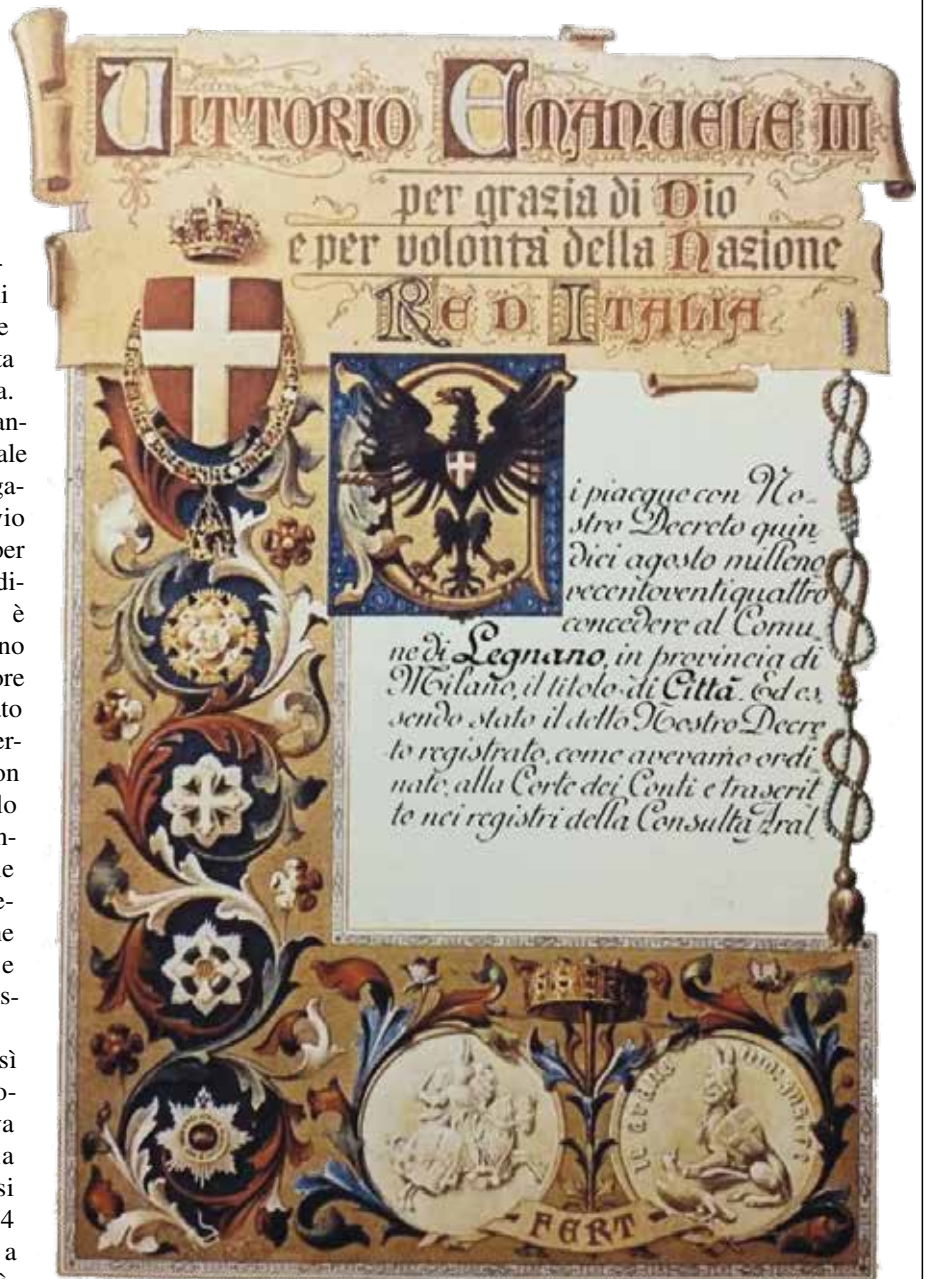 VITTORIO EMANUELE III
per grazia di Dio
e per volontà della Nazione
RE D ITALIA
i piacque con No-
stro Decreto quin
dici agosto milleno
vecentoventiquattro
concedere al Comu
ne di Legnano, in provincia di
Milano, il titolo di Città. Ed es,
sendo stato il detto Nostro Decre
to registrato, come avevamo ordi,
nato, alla Corte dei Conti e trascrit
to nei registri della Consulta Aral
FERT
-
i
e
ta
a.
an-
ale
ga-
vio
per
di-
è
no
ore
to
er-
on
lo
n-
le
e-
ne
e
s-
sì
o-
va
a
si
4
a